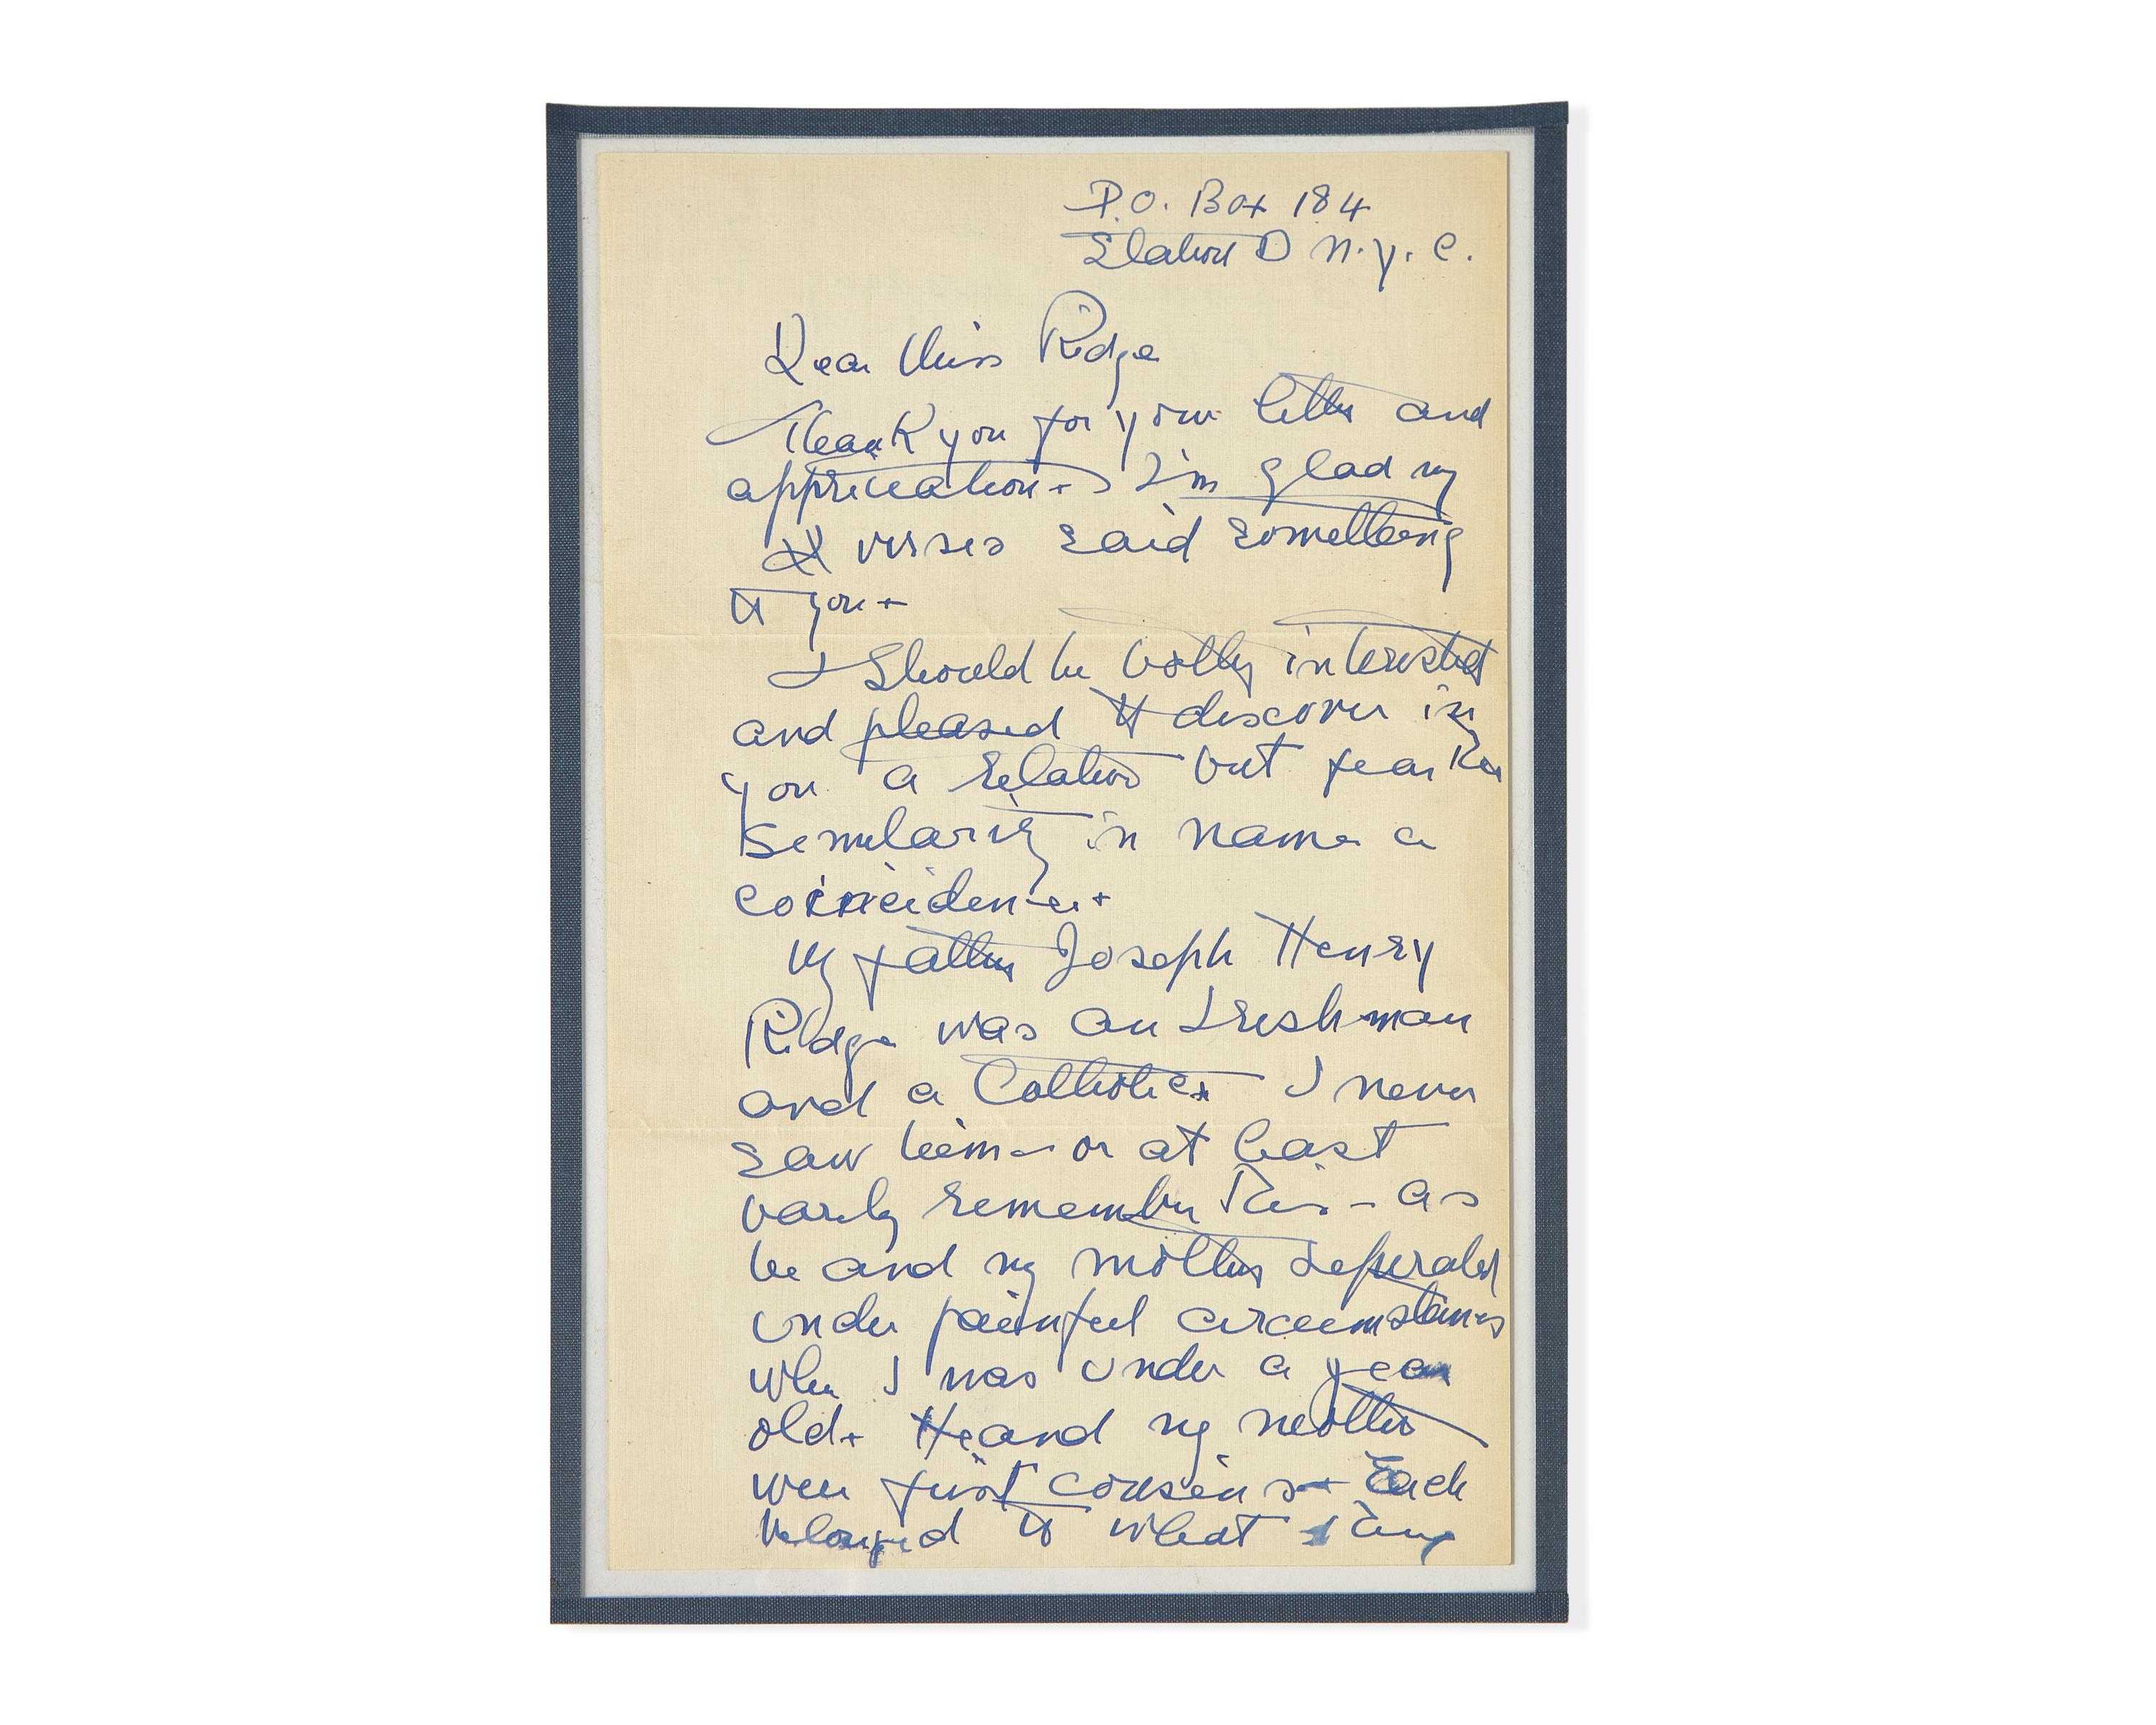 P.O. Box 184
Station D N.Y.C.
Dear Miss Ridge
Thank you for your letter and
appreciation. I'm glad my
verses said something
to you.
I should be both interested
and pleased to discover in
you a relation but fear the
similarity in name a
coincidence.
My father Joseph Henry
Ridge was an Irishman
and a Catholic. I never
saw him – or at least
barely remember him – as
he and my mother seperated
under painful circumstances
when I was under a year
old. He and my mother
were first cousins. Each
belonged to what